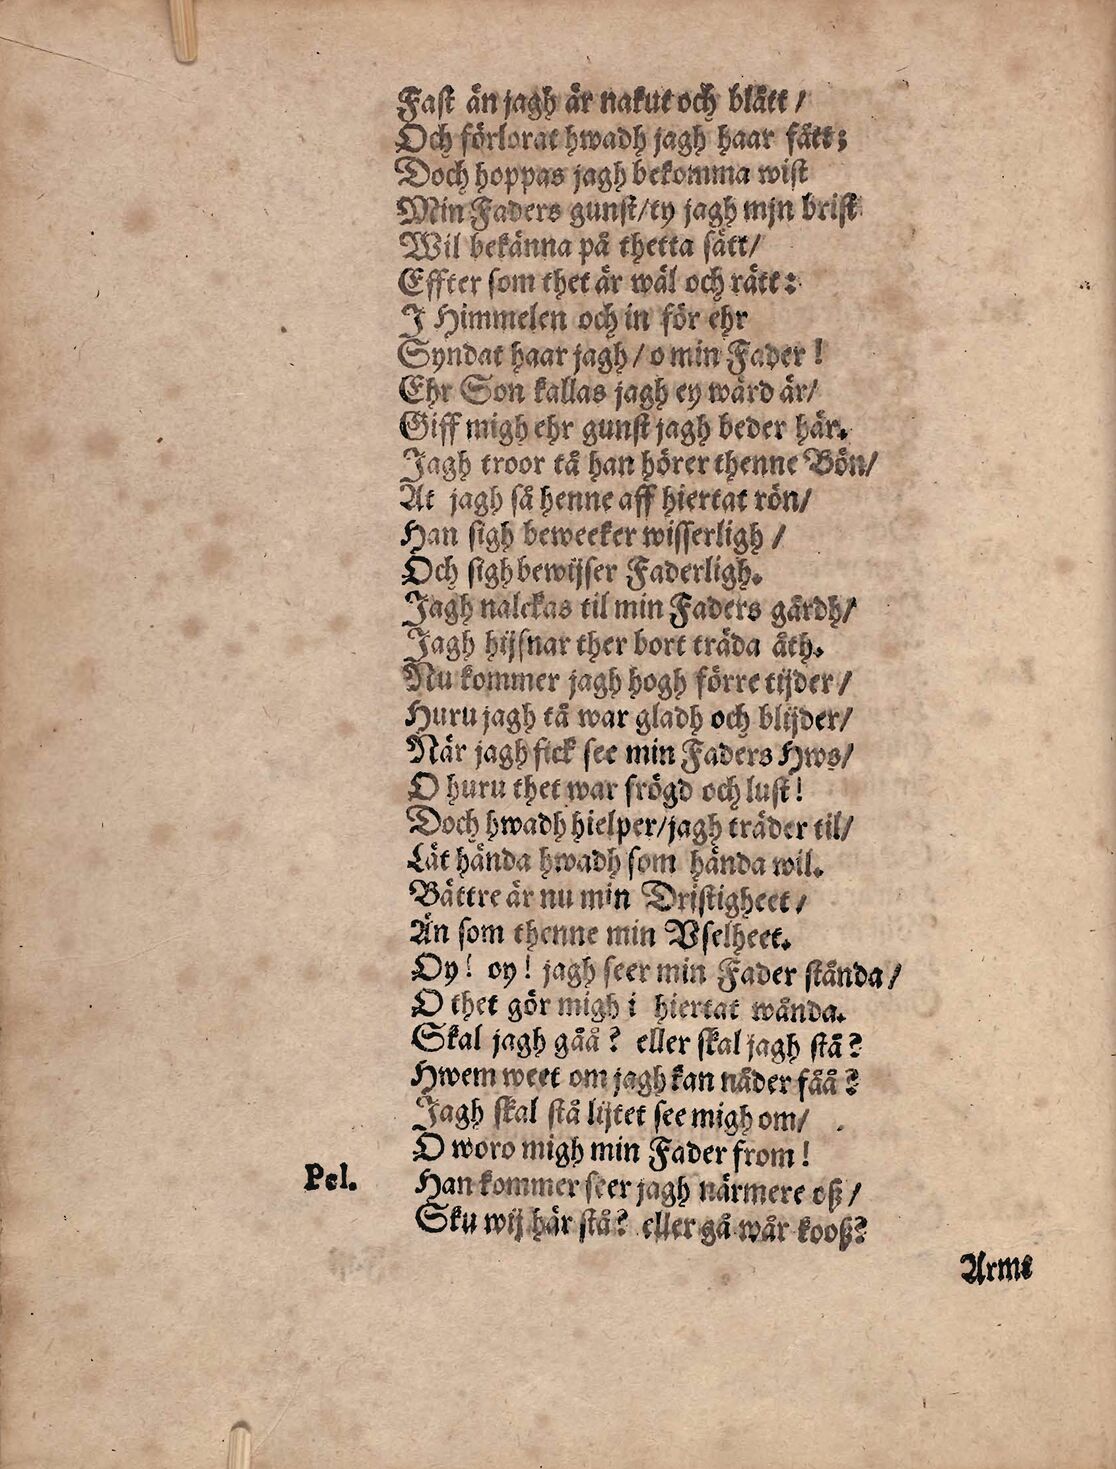 Fast än jagh är nakut och blått/
Och förlorat hwadh jagh haar fått;
Doch hoppas jagh bekomma wist
Min Faders gunst/ty jagh mjn brist
Wil bekänna på thetta sätt/
Effter som thet är wäl och rätt:
J Himmelen och in för ehr
Syndat haar jagh/o min Fader!
Ehr Son kallas jagh ey wärd är/
Giff migh ehr gunst jagh beder här.
Jagh troor tå han hörer thenne Bön/
At jagh så henne aff hiertat rön/
Han sigh beweeker wisserligh/
Och sigh bewijser Faderligh.
Jagh nalckas til min Faders gårdh/
Jagh hijsnar ther bort träda åth.
Nu kommer jagh hogh förre tijder/
Huru jagh tå war gladh och blijder/
När jagh fick see min Faders Hws/
O huru thet war frögd och lust!
Doch hwadh hielper/jagh träder til/
Låt hända hwadh som hända wil.
Bättre är nu min Dristigheet/
Än som thenne min Vselheet.
Oy! oy! jagh seer min Fader stånda/
O thet gör migh i hiertat wånda.
Skal jagh gåå? eller skal jagh stå?
Hwem weet om jagh kan nåder fåå?
Jagh skal stå lijtet see migh om/
O woro migh min Fader from!
Pel. Han kommer seer jagh närmere oß/
Sku wij här stå? eller gå wår kooß?
Arme